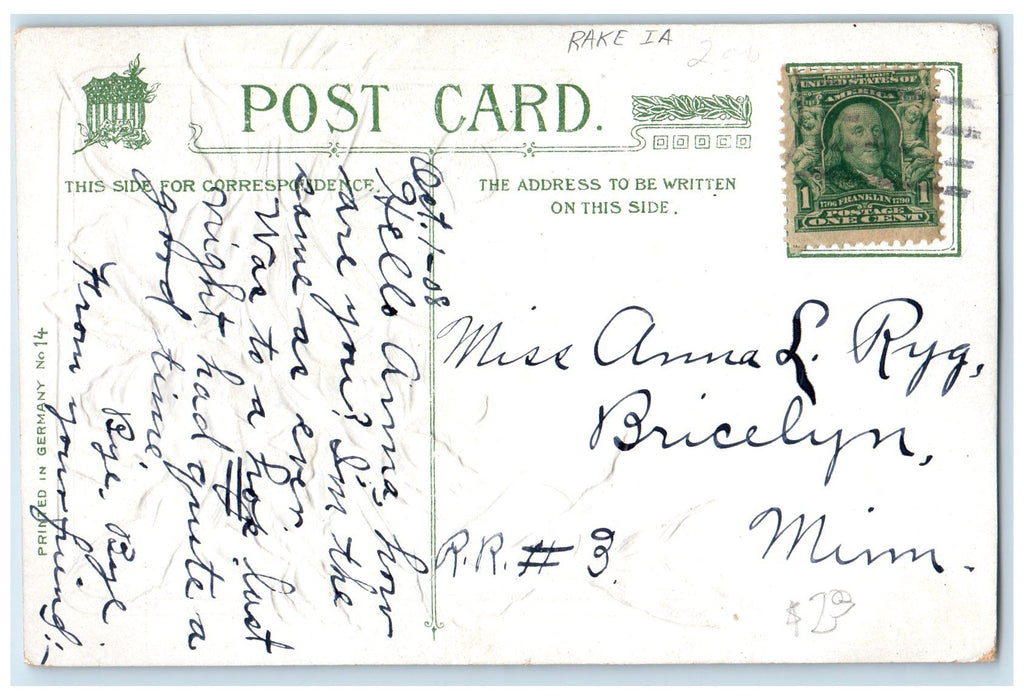 RAKE IA
POST CARD.
THIS SIDE FOR CORRESPONDENCE.
THE ADDRESS TO BE WRITTEN
ON THIS SIDE.
SERIES 1902
UNITED STATES OF
AMERICA
1 1
1706 FRANKLIN 1790
POSTAGE
ONE CENT
Oct. 1-08
Hello Anna, how
are you? I'm the
same as ever.
Was to a last
night had quite a
good time
Bye. Bye
From your friend:-
Miss Anna L. Ryg,
Bricelyn,
Minn.
R.R. # 3.
PRINTED IN GERMANY No 14